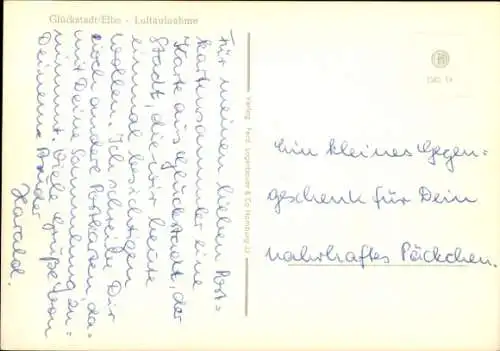 Glückstadt/Elbe - Luftaufnahme
Für meinen lieben Post-
kartensammler eine
Karte aus Glückstadt, der
Stadt, die wir heute
einmal besichtigen
wollen. Ich schreibe Dir
noch andere Postkarten, da-
mit Deine Sammlung zu-
nimmt. Viele Grüße von
Deinem Bruder
Harald.
Verlag Ferd. Lagerbauer & Co Hamburg
Ein kleines Gegen-
geschenk für Dein
nahrhaftes Päckchen.